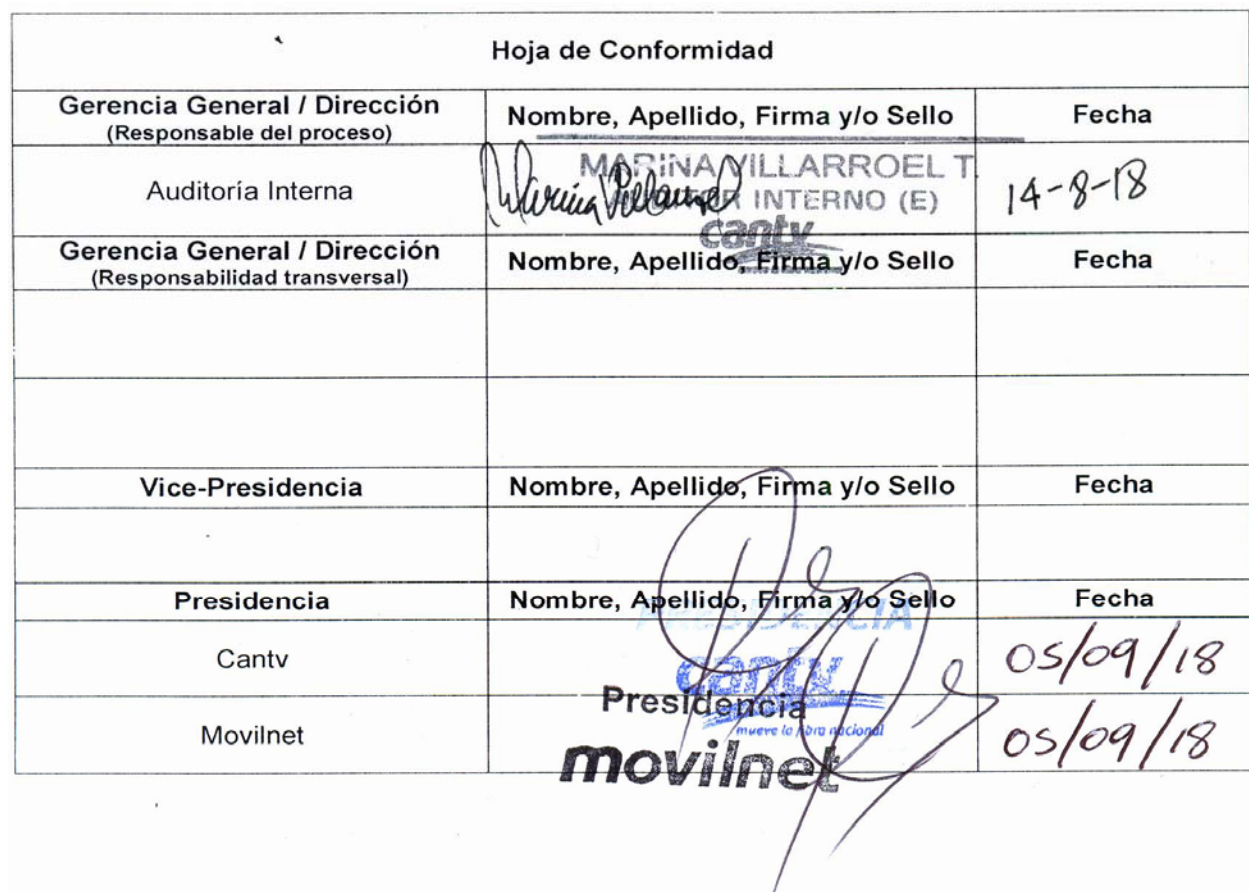 Hoja de Conformidad
Gerencia General / Dirección
(Responsable del proceso)
Nombre, Apellido, Firma y/o Sello
Fecha
Auditoría Interna
Marina Villarroel
MARINA VILLARROEL T.
AUDITOR INTERNO (E)
cantv
14-8-18
Gerencia General / Dirección
(Responsabilidad transversal)
Nombre, Apellido, Firma y/o Sello
Fecha
Vice-Presidencia
Nombre, Apellido, Firma y/o Sello
Fecha
Presidencia
Nombre, Apellido, Firma y/o Sello
Fecha
PRESIDENCIA
Cantv
cantv
05/09/18
mueve la fibra nacional
Movilnet
Presidencia
movilnet
05/09/18